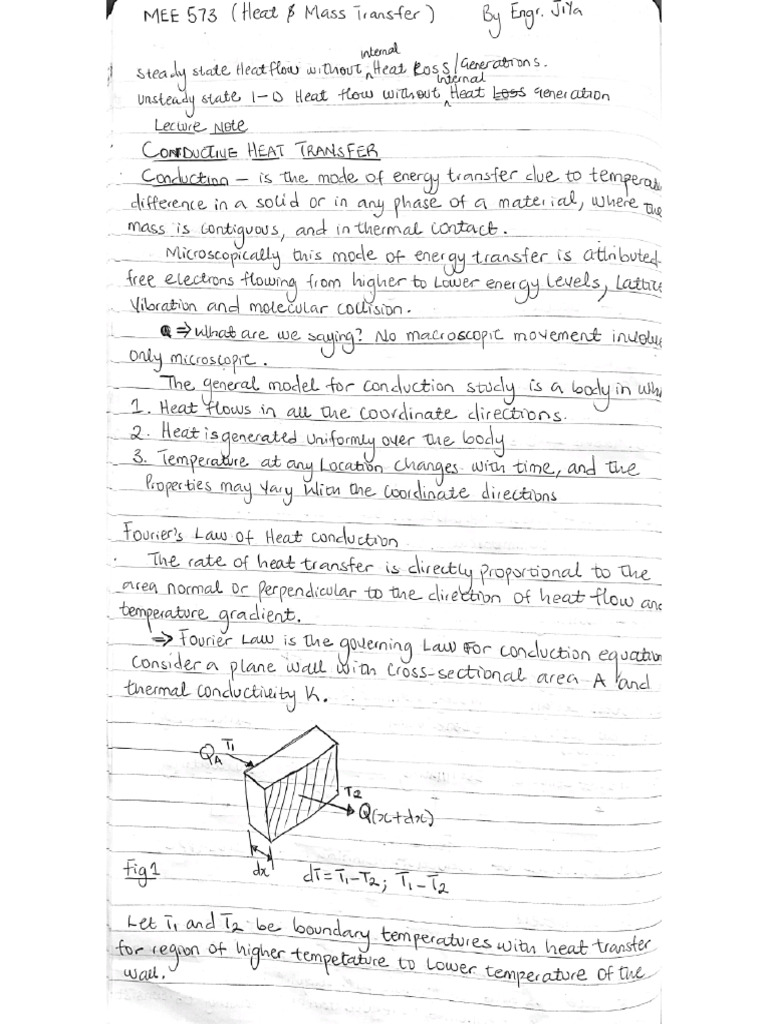 MEE 573 (Heat & Mass Transfer) By Engr. JiYa
internal
Steady state Heat flow without Heat Loss/Generations.
internal
Unsteady state 1-D Heat flow without Heat Loss Generation
Lecture Note
CONDUCTIVE HEAT TRANSFER
Conduction – is the mode of energy transfer due to tempera
difference in a solid or in any phase of a material, where the
mass is contiguous, and in thermal contact.
Microscopically this mode of energy transfer is attributed
free electrons flowing from higher to Lower energy levels, Lattice
Vibration and molecular collision.
⇒ What are we saying? No macroscopic movement involve
only microscopic.
The general model for conduction study is a body in wh
1. Heat flows in all the coordinate directions.
2. Heat is generated Uniformly over the body
3. Temperature at any Location changes with time, and the
Properties may vary with the coordinate directions
Fourier's Law of Heat conduction
The rate of heat transfer is directly proportional to the
area normal or perpendicular to the direction of heat flow and
temperature gradient.
⇒ Fourier Law is the governing Law for conduction equation
consider a plane wall with cross-sectional area A and
thermal conductivity K.
QA T1
T2
Q(x+dx)
dx
Fig 1
dT = T1-T2; T1-T2
Let T1 and T2 be boundary temperatures with heat transfer
for region of higher tempetature to Lower temperature of the
wall.